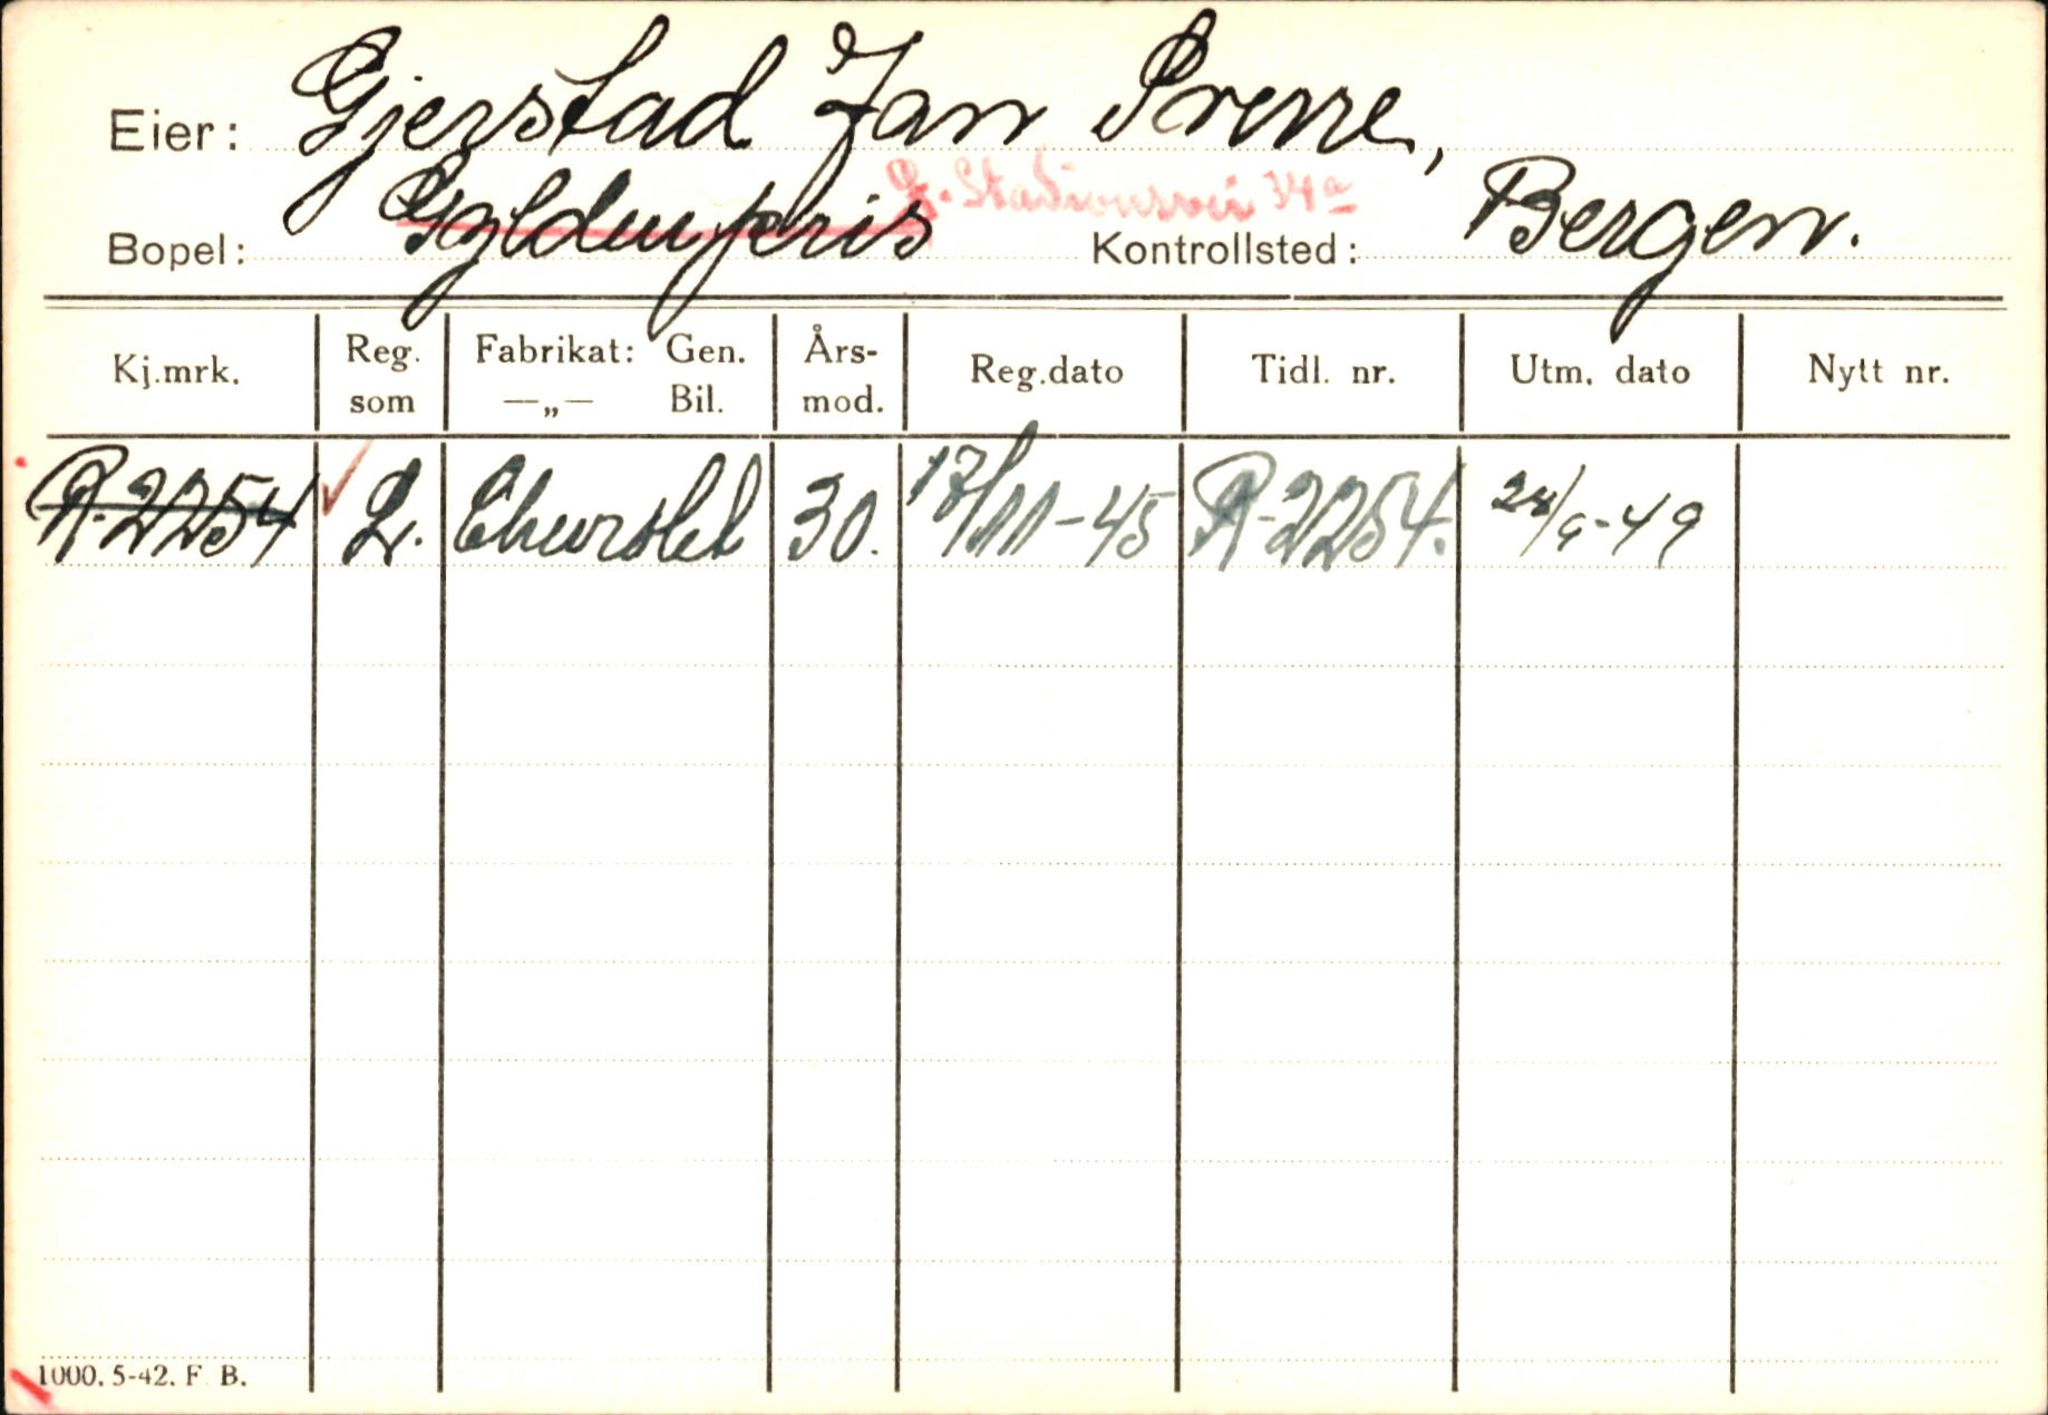 Eier: Gjerstad Jan Sverre,
G. Stadionsvei 34a
Bopel: Gyldenpris Kontrollsted: Bergen.
Kj.mrk. Reg. som Fabrikat: Gen. —„— Bil. Års- mod. Reg.dato Tidl. nr. Utm. dato Nytt nr.
R-2254 L. Chevrolet 30. 17/11-45 R-2254. 28/9-49
1000. 5-42. F. B.